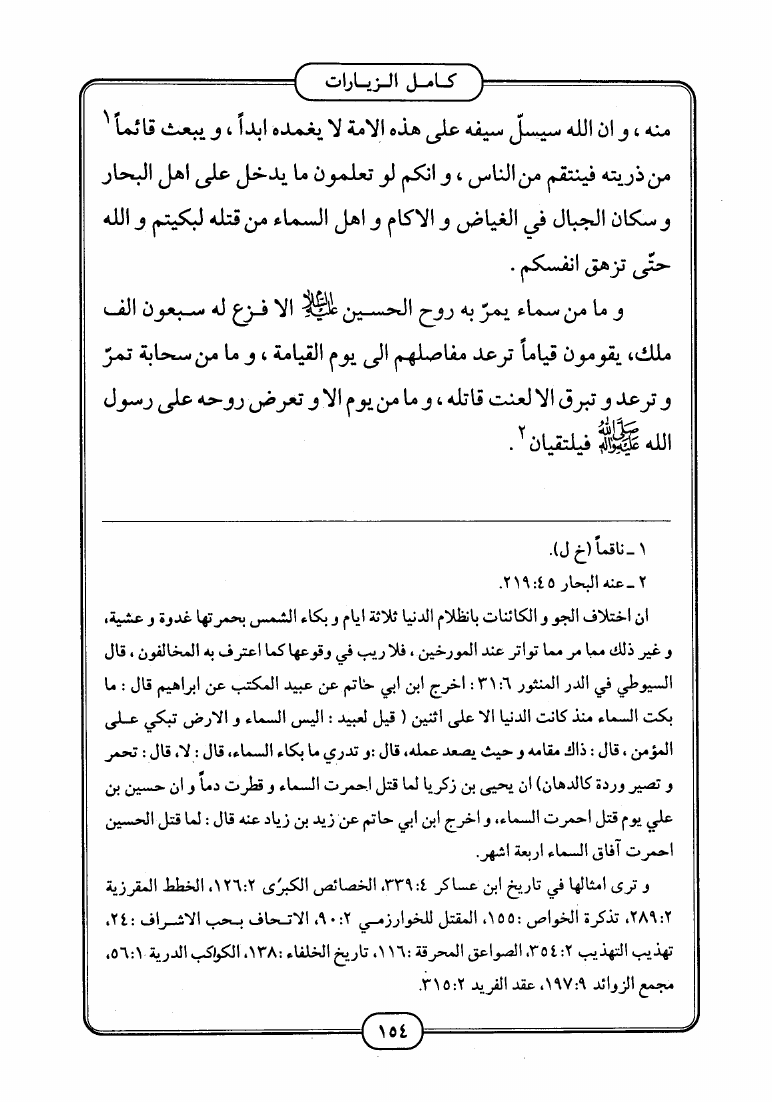 كـامـل الـزيـارات
منه ، و ان الله سيسلّ سيفه على هذه الامة لا يغمده ابداً ، و يبعث قائماً١
من ذريته فينتقم من الناس ، و انكم لو تعلمون ما يدخل على اهل البحار
و سكان الجبال في الغياض و الاكام و اهل السماء من قتله لبكيتم و الله
حتّى تزهق انفسكم .
و ما من سماء يمرّ به روح الحسـين عليه السلام الا فـزع له سـبعون الف
ملك، يقومون قياماً ترعد مفاصلهم الى يوم القيامة ، و ما من سحابة تمرّ
و ترعد و تبرق الا لعنت قاتله ، و ما من يوم الا و تعرض روحه على رسول
الله ﷺ فيلتقيان٢ .
١ ـ ناقماً (خ ل).
٢ ـ عنه البحار ٤٥ :٢١٩.
ان اختلاف الجو و الكائنات بانظلام الدنيا ثلاثة ايام و بكاء الشمس بحمرتها غدوة و عشية،
و غير ذلك مما مر مما تواتر عند المورخين ، فلا ريب في وقوعها كما اعترف به المخالفون ، قال
السيوطي في الدر المنثور ٦ :٣١ : اخرج ابن ابي حاتم عن عبيد المكتب عن ابراهيم قال : ما
بكت السماء منذ كانت الدنيا الا على اثنين ( قيل لعبيد : اليس السماء و الارض تبكي عـلـى
المؤمن ، قال : ذاك مقامه و حيث يصعد عمله، قال :و تدري ما بكاء السماء، قال : لا، قال : تحمر
و تصير وردة كالدهان) ان يحيى بن زكريا لما قتل احمرت السماء و قطرت دماً و ان حسين بن
علي يوم قتل احمرت السماء، و اخرج ابن ابي حاتم عن زيد بن زياد عنه قال : لما قتل الحسين
احمرت آفاق السماء اربعة اشهر.
و ترى امثالها في تاريخ ابن عساكر ٤ :٣٣٩، الخصائص الكبرى ٢ :١٢٦، الخطط المقرزية
٢ :٢٨٩، تذكرة الخواص :١٥٥، المقتل للخوارزمـي ٢ :٩٠، الاتـحاف بـحب الاشـراف :٢٤،
تهذيب التهذيب ٢ :٣٥٤، الصواعق المحرقة :١١٦، تاريخ الخلفاء :١٣٨، الكواكب الدرية ١ :٥٦،
مجمع الزوائد ٩ :١٩٧، عقد الفريد ٢ :٣١٥.
١٥٤